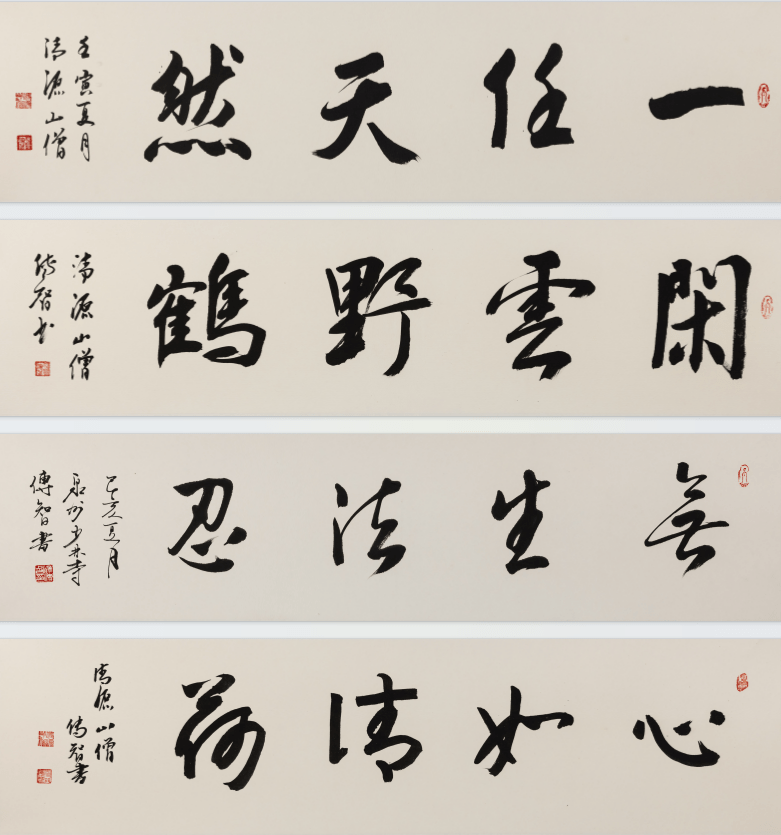 一任天然
壬寅夏月
清源山僧
閑雲野鶴
清源山僧
傳智书
無生法忍
己亥夏月
泉州少林寺
傳智書
心如清荷
清源山僧
傳智書